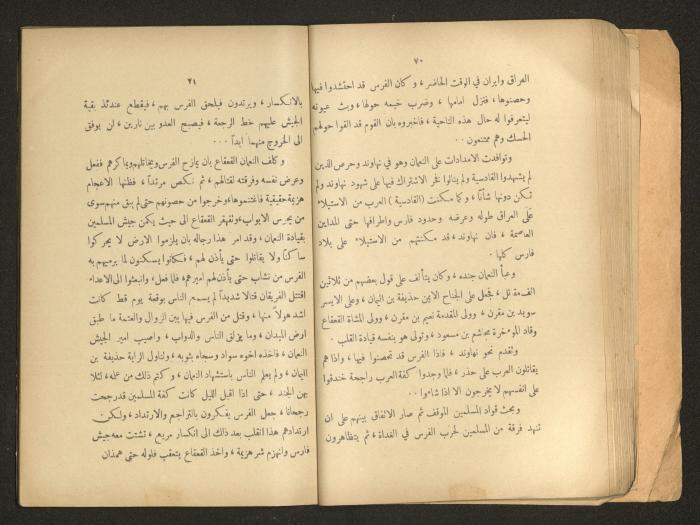 ٧٠
العراق وايران في الوقت الحاضر ، وكان الفرس قد احتشدوا فيها
وحصنوها ، فنزل امامها ، وضرب خيمه حولها ، وبث عيونه
ليتعرفوا له حال هذه الناحية ، فأخبروه بان القوم قد القوا حولهم
الحسك وهم ممتنعون . .
وتوافدت الامدادات على النعمان وهو في نهاوند وحرص الذين
لم يشهدوا القادسية ولم ينالوا فخر الاشتراك فيها على شهود نهاوند ولم
تكن دونها شأناً ، وكما مكنت ( القادسية ) العرب من الاستيلاء
على العراق طوله وعرضه وحدود فارس واطرافها حتى المداين
العاصمة ، فان نهاوند ، قد مكنتهم من الاستيلاء على بلاد
فارس كلها .
وعبأ النعمان جنده ، وكان يتألف على قول بعضهم من ثلاثين
الف مقاتل ، فجعل على الجناح الايمن حذيفة بن اليمان ، وعلى الايسر
سويد بن مقرن ، وولى المقدمة نعيم بن مقرن ، وولى المشاة القعقاع
وقاد المؤخرة مجاشع بن مسعود ، وتولى هو بنفسه قيادة القلب .
وتقدم نحو نهاوند ، فاذا الفرس قد تحصنوا فيها ، واذا هم
يقاتلون العرب على حذر ، فلما وجدوا كفة العرب راجحة خندقوا
على انفسهم لا يخرجون الا اذا شاءوا . .
وبحث قواد المسلمين الموقف ثم صار الاتفاق بينهم على ان
تنهد فرقة من المسلمين لحرب الفرس في الغداة ، ثم يتظاهرون
٧١
بالانكسار ، ويرتدون فيلحق الفرس بهم ، فيقطع عندئذ بقية
الجيش عليهم خط الرجعة ، فيصبح العدو بين نارين ، لن يوفق
الى الخروج منهما ابداً . . .
وكلف النعمان القعقاع بان يمازح الفرس ويخاتلهم ويماكرهم ففعل
وعرض نفسه وفرقته لقتالهم ، ثم نكص مرتداً ، فظنها الاعجام
هزيمة حقيقية فاغتنموها ، وخرجوا من حصونهم حتى لم يبق منهم سوى
من يحرس الابواب ، وتقهقر القعقاع الى حيث يكمن جيش المسلمين
بقيادة النعمان ، وقد امر هذا رجاله بان يلزموا الارض لا يحركوا
ساكناً ولا يقاتلوا حتى يأذن لهم ، فكانوا يسكنون لما يرميهم به
الفرس من نشاب حتى يأذن لهم اميرهم ، فلما فعل ، وانبعثوا الى الاعداء
اقتتل الفريقان قتالا شديداً لم يسمع الناس بوقعة يوم قط كانت
اشد هولاً منها ، وقتل من الفرس فيها بين الزوال والعتمة ما طبق
ارض الميدان ، وما يزلق الناس والدواب ، واصيب امير الجيش
النعمان ، فاخذه اخوه سواد وسجاه بثوبه ، وتناول الراية حذيفة بن
اليمان ، ولم يعلم الناس باستشهاد النعمان ، وكتم ذلك من عمله ، لئلا
يهن الجند ، حتى اذا اقبل الليل كانت كفة المسلمين قد رجحت
رجحانا ، جعل الفرس يفكرون بالتراجع والارتداد ، ولكن
ارتدادهم هذا انقلب بعد ذلك الى انكسار مريع ، تشتت معه جيش
فارس وانهزم شر هزيمة ، واخذ القعقاع يتعقب فلوله حتى همذان